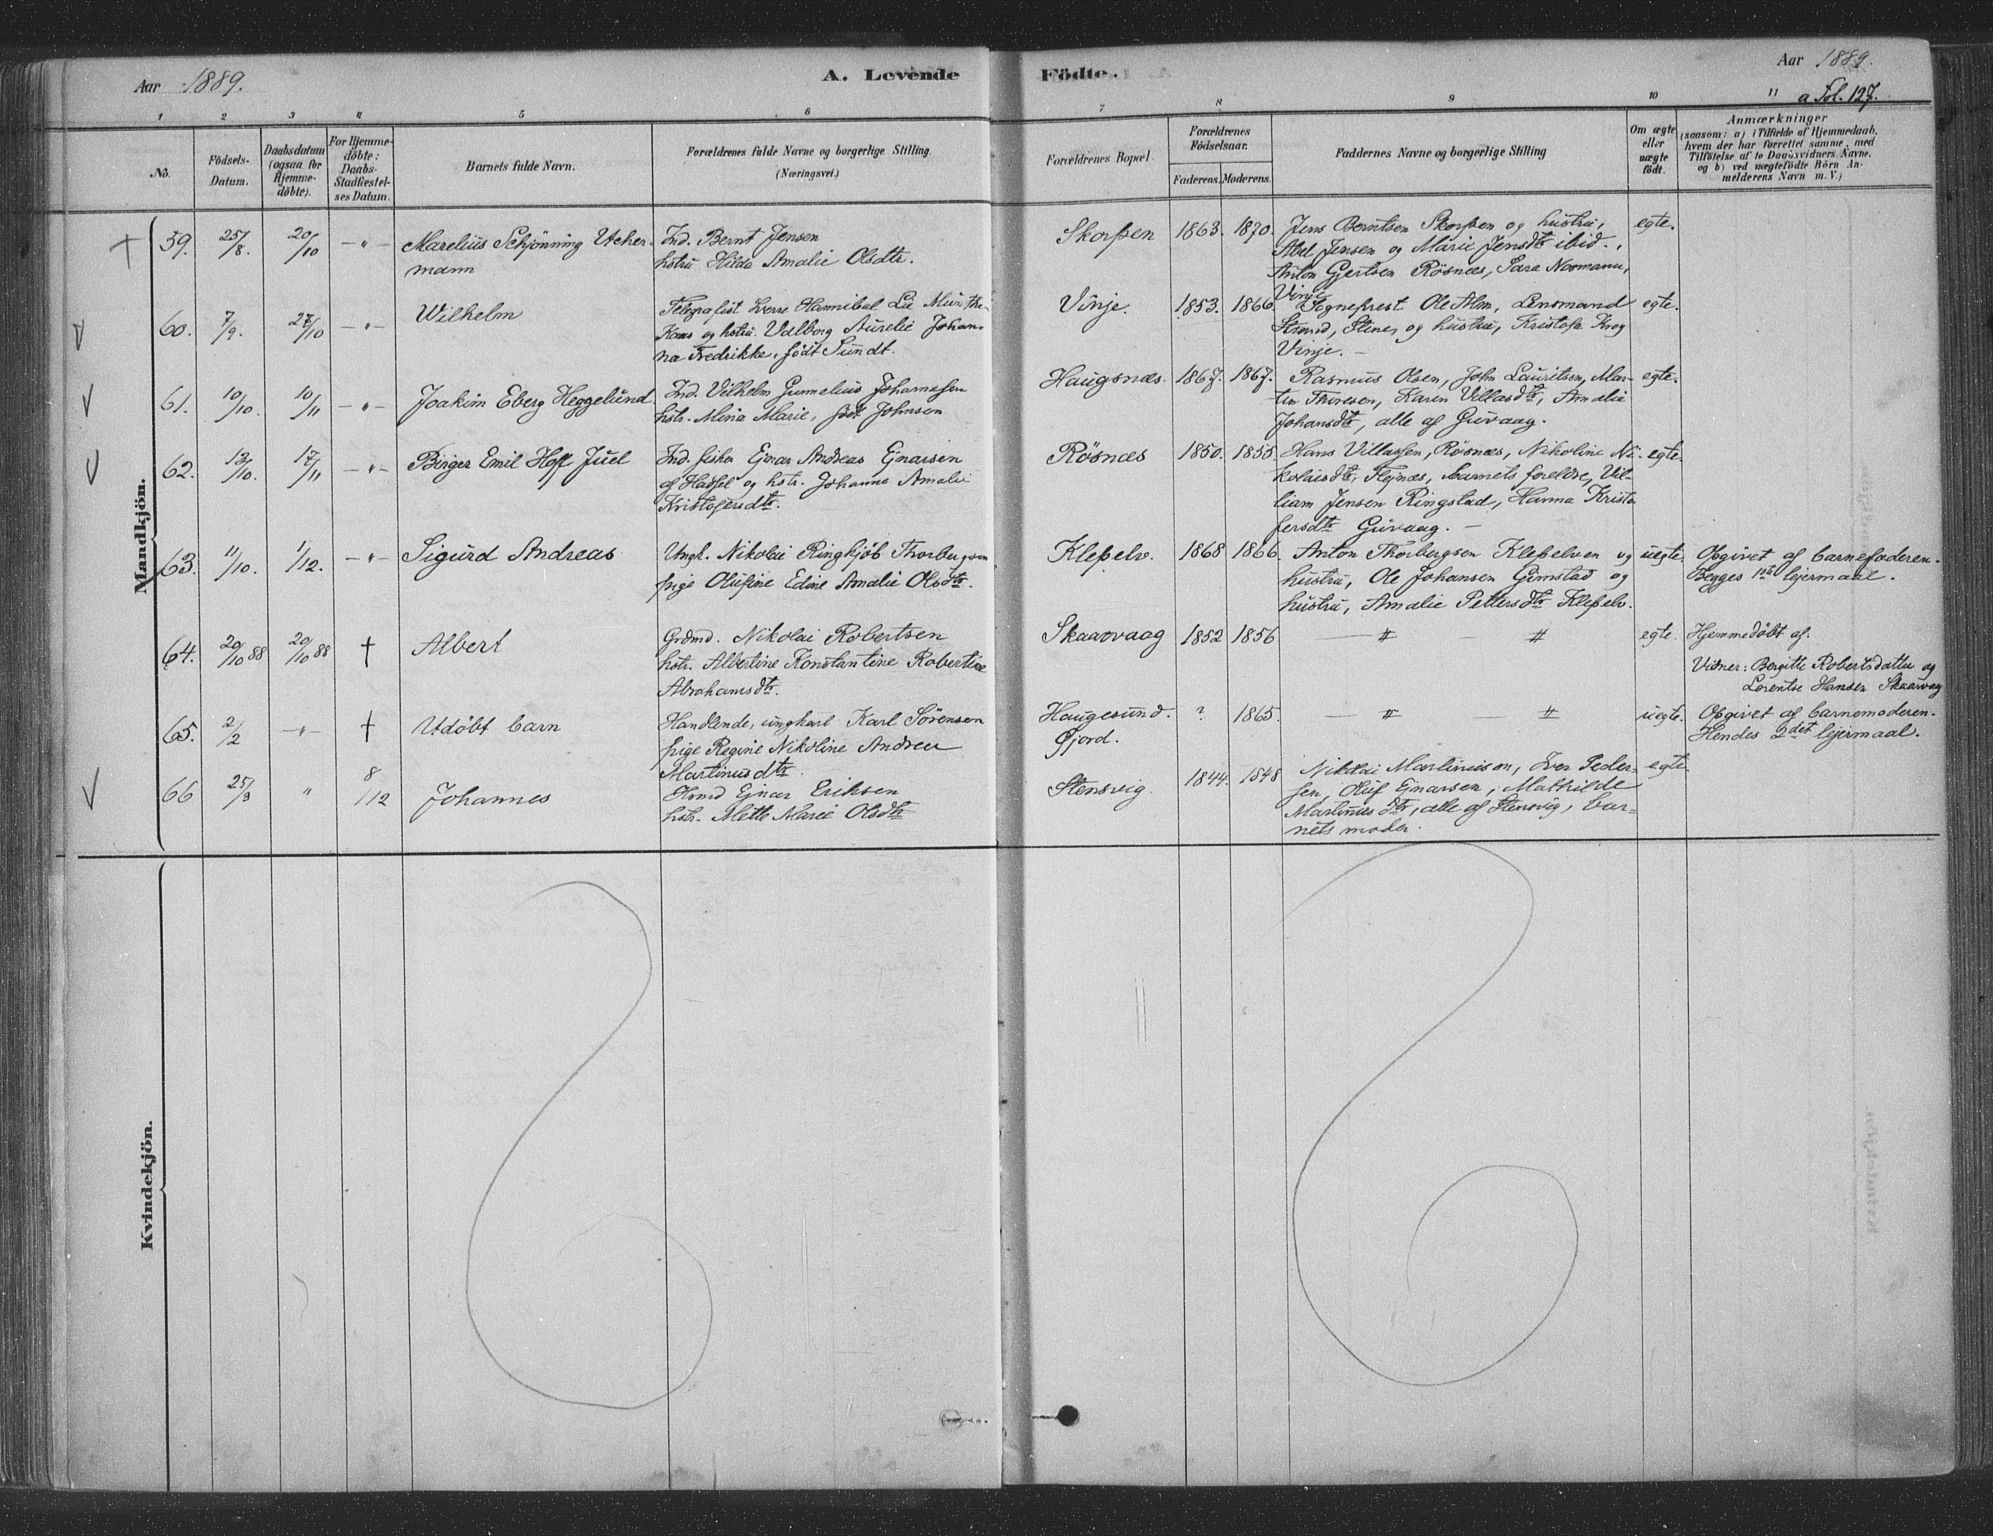 Aar 1889.
A. Levende
Födte.
Aar 1889.
a Fol. 127.
1 2 3 4 5 6 7 8 9 10 11
No.
Födsels-
Datum.
Daabsdatum
(ogsaa for
Hjemme-
döbte).
For Hjemme-
döbte:
Daabs-
Stadfæstel-
ses Datum.
Barnets fulde Navn.
Forældrenes fulde Navne og borgerlige Stilling
(Næringsvei.)
Forældrenes Bopæl.
Forældrenes
Födselsaar.
Faderens. Moderens.
Faddernes Navne og borgerlige Stilling
Om ægte
eller
uægte
födt.
Anmærkninger
(saasom: a) i Tilfælde af Hjemmedaab,
hvem der har forrettet samme, med
Tilföielse af to Daabsvidners Navne,
og b) ved uægtefödte Börn An-
melderens Navn m. V.)
Mandkjön.
59. 25/8. 20/10 -"- Marelius Schjönning Ucher-
mann
Ind. Bernt Jensen
hstru Hilda Amalie Olsdtr.
Skorpen 1863. 1870.
Jens Berntsen Skorpen og hustru,
Abel Jensen og Marie Jensdtr ibid.,
Anton Gertsen Rösnæs, Sara Normann,
Vinje
egte.
60. 7/9. 27/10 -"- Wilhelm
Telegrafist Lie Munthe-
Kaas og hstru Valborg Aurelie Johan-
na Fredrikke, født Sundt.
Vinje. 1853. 1866
Sogneprest Ole Alm, Lensmand
Strand, Stene, og hustru, Kristofa Krog
Vinje. -
egte.
61. 10/10. 10/11 -"- Joakim Eberg Heggelund
Ind. Vilhelm Gunnelius Johannessen
hstr. Mina Marie, født Johnsen
Haugsnæs. 1867. 1867.
Rasmus Olsen, John Lauritsen, Mar-
tin Thoresen, Karen Villasdtr, Amalie
Johansdtr, alle af Guvaag.
egte.
62. 13/10. 17/11 -"- Birger Emil Hoff Juel
Ind. fisker Ejnar Andreas Ejnarsen
af Hadsel og hstr. Johanne Amalie
Kristofersdtr.
Rösnæs 1850. 1855.
Hans Villassen, Rösnæs, Nikoline Ni-
kolaisdtr, Flejnæs, barnets forældre, Vil-
liam Jensen Ringstad, Hanna Kristo
fersdtr Guvaag. -
egte.
63. 11/10. 1/12. -"- Sigurd Andreas
Ungk. Nikolai Ringkjöb Thorbergsen
pige Olufine Edine Amalie Olsdtr.
Klepelv. 1868 1866.
Anton Thorbergsen Klepelven og
hustru, Ole Johansen Gimstad og
hustru, Amalie Pettersdtr Klepelv.
uegte.
Opgivet af barnefaderen.
Begges 1ste lejermaal.
64. 20/10 88 20/10 88 † Albert
Grdmd. Nikolai Robertsen
hstr. Albertine Konstantine Robertine
Abrahamsdtr.
Skaarvaag 1852 1856
egte.
Hjemmedøbt af.
Vidner: Bergitte Robertsdatter og
Lorentse Hansen Skaarvag
65. 2/2 -"- † Udöbt barn
Handlende, ungkarl Karl Sörensen
pige Regine Nikoline Andrea
Martinusdtr.
Haugesund.
Fjord.
? 1865.
uegte.
Opgivet af barnemoderen.
Hendes 2det lejermaal.
66 25/3 " 8/12 Johannes
Ejnar Eriksen
hstr. Mette Marie Olsdtr
Stensvig. 1844. 1848
Nikolai Martinusson, Iver Peder-
sen, Oluf Ejnarsen, Mathilde
Martinusdtr, alle af Stensvig, bar-
nets moder.
egte
Kvindekjön.